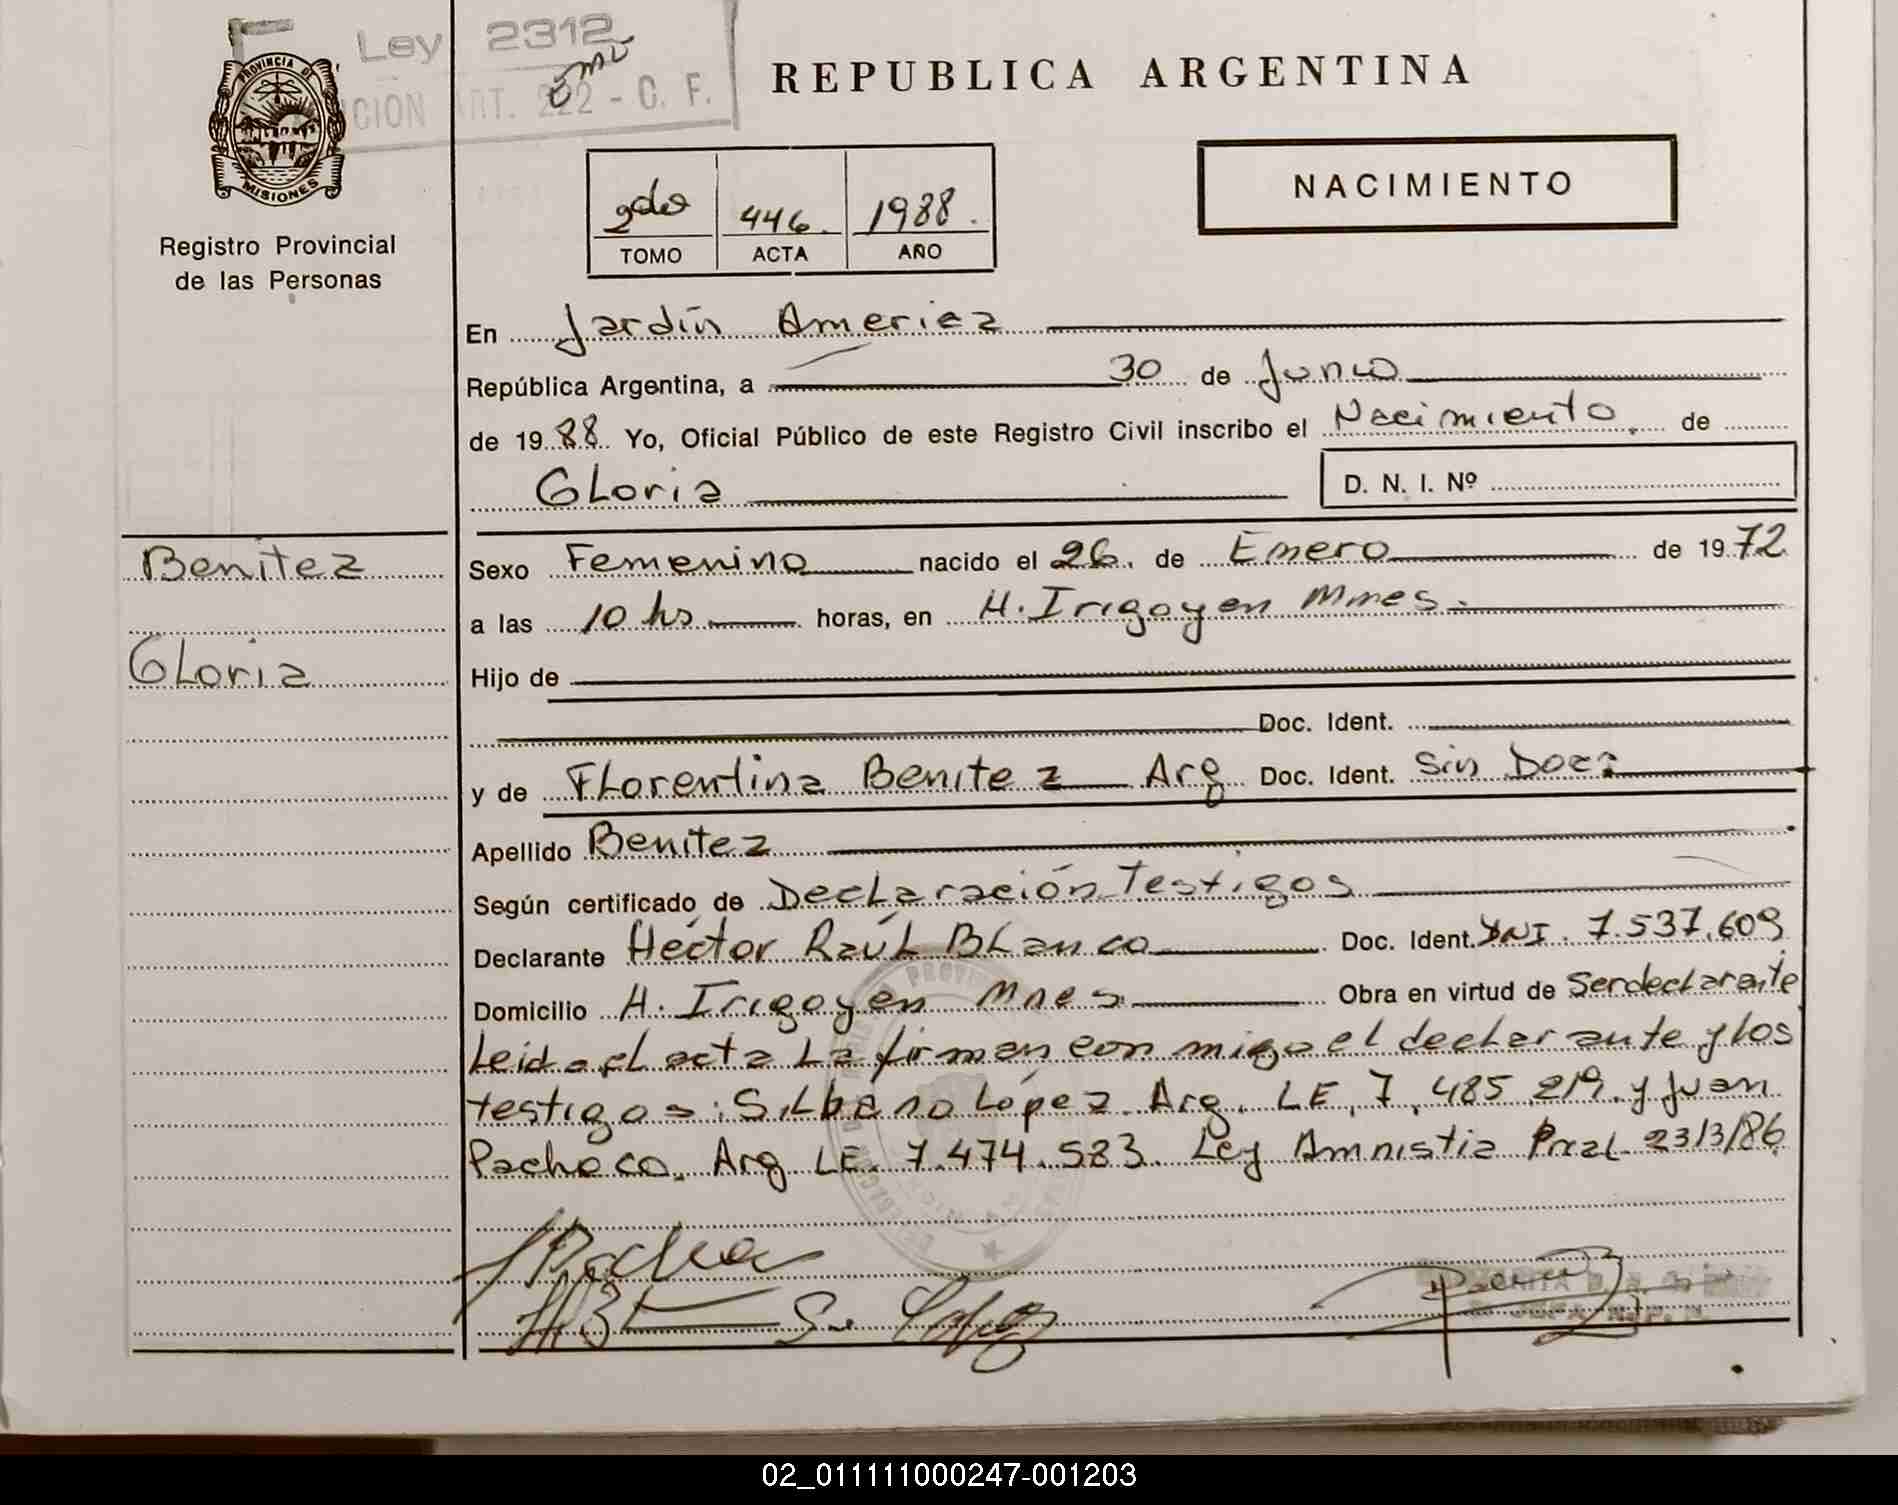 Ley 2312
CION ART. 222 - C. F.
PROVINCIA DE
MISIONES
Registro Provincial
de las Personas
REPUBLICA ARGENTINA
NACIMIENTO
2do 446. 1988.
TOMO ACTA AÑO
En Jardín America
República Argentina, a 30 de Junio
de 1988 Yo, Oficial Público de este Registro Civil inscribo el Nacimiento de
Gloria D. N. I. Nº
Benitez
Gloria
Sexo Femenino nacido el 26 de Enero de 1972
a las 10 hs horas, en H. Irigoyen Mnes.
Hijo de
Doc. Ident.
y de Florentina Benitez Arg Doc. Ident. Sin Doc:
Apellido Benitez
Según certificado de Declaración Testigos
Declarante Héctor Raúl Blanco Doc. Ident. DNI. 7.537.609
Domicilio H. Irigoyen Mnes Obra en virtud de Ser declarante
Leida el acta la firman con migo el declarante y los
testigos: Silbano López Arg. LE. 7.485 219. y Juan
Pacheco. Arg LE. 7.474.583. Ley Amnistia Przal 23/3/86
02_011111000247-001203